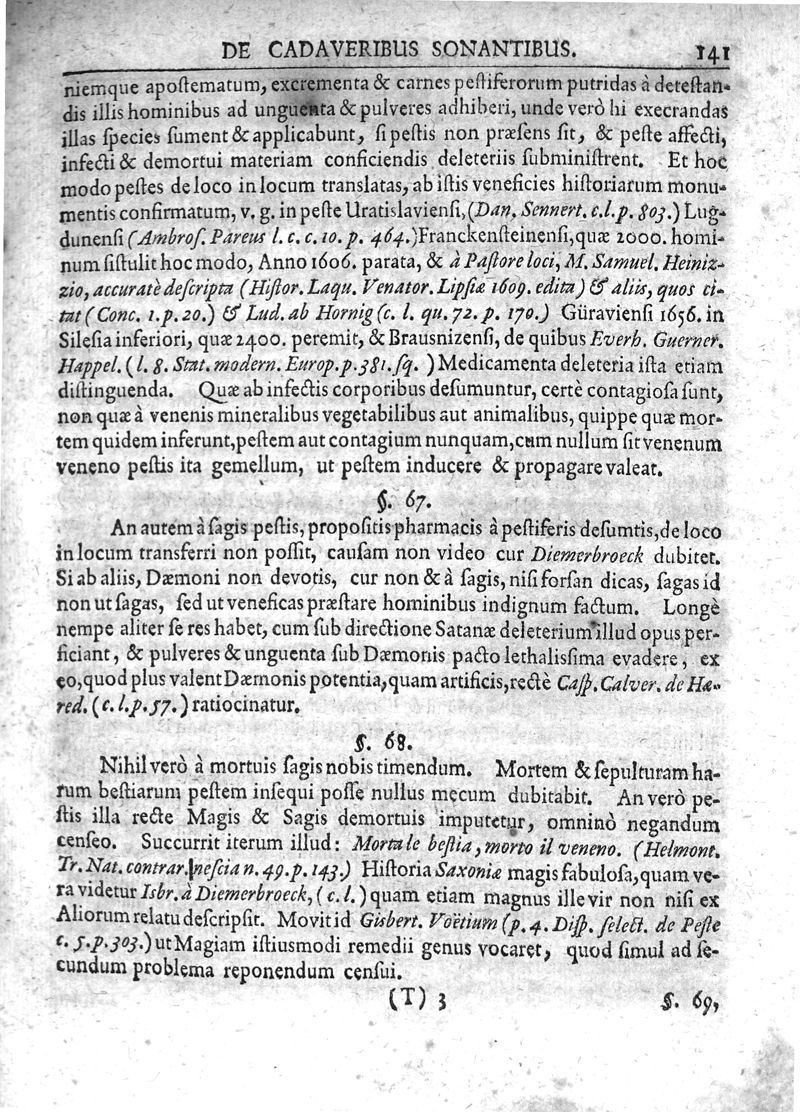 DE CADAVERIBUS SONANTIBUS. 141
niemque apoſtematum, excrementa & carnes peſtiferorum putridas à deteſtan-
dis illis hominibus ad unguenta & pulveres adhiberi, unde verò hi execrandas
illas ſpecies ſument & applicabunt, ſi peſtis non præſens ſit, & peſte affecti,
infecti & demortui materiam conficiendis deleteriis ſubminiſtrent. Et hoc
modo peſtes de loco in locum translatas, ab iſtis veneficies hiſtoriarum monu-
mentis confirmatum, v. g. in peſte Uratislavienſi, (Dan. Sennert. c.l.p. 803.) Lug-
dunenſi (Ambroſ. Pareus l. c. c. 10. p. 464.) Franckenſteinenſi, quæ 2000. homi-
num ſiſtulit hoc modo, Anno 1606. parata, & à Paſtore loci, M. Samuel. Heiniz-
zio, accuratè deſcripta (Hiſtor. Laqu. Venator. Lipſiæ 1609. edita) & aliis, quos ci-
tat (Conc. 1. p. 20.) & Lud. ab Hornig (c. l. qu. 72. p. 170.) Güravienſi 1656. in
Sileſia inferiori, quæ 2400. peremit, & Brausnizenſi, de quibus Everh. Guerner.
Happel. (l. 8. Stat. modern. Europ. p. 381. ſq. ) Medicamenta deleteria iſta etiam
diſtinguenda. Quæ ab infectis corporibus deſumuntur, certè contagioſa ſunt,
non quæ à venenis mineralibus vegetabilibus aut animalibus, quippe quæ mor-
tem quidem inferunt, peſtem aut contagium nunquam, cum nullum ſit venenum
veneno peſtis ita gemellum, ut peſtem inducere & propagare valeat.
§. 67.
An autem à ſagis peſtis, propoſitis pharmacis à peſtiferis deſumtis, de loco
in locum transferri non poſſit, cauſam non video cur Diemerbroeck dubitet.
Si ab aliis, Dæmoni non devotis, cur non & à ſagis, niſi forſan dicas, ſagas id
non ut ſagas, ſed ut veneficas præſtare hominibus indignum factum. Longè
nempe aliter ſe res habet, cum ſub directione Satanæ deleterium illud opus per-
ficiant, & pulveres & unguenta ſub Dæmonis pacto lethaliſſima evadere, ex
eo, quod plus valent Dæmonis potentia, quam artificis, rectè Caſp. Calver. de Hæ-
red. (c. l. p. 57. ) ratiocinatur.
§. 68.
Nihil verò à mortuis ſagis nobis timendum. Mortem & ſepulturam ha-
rum beſtiarum peſtem inſequi poſſe nullus mecum dubitabit. An verò pe-
ſtis illa recte Magis & Sagis demortuis imputetur, omninò negandum
cenſeo. Succurrit iterum illud: Mortale beſtia, morto il veneno. (Helmont.
Tr. Nat. contrar. neſcia n. 49. p. 143.) Hiſtoria Saxoniæ magis fabuloſa, quam ve-
ra videtur Isbr. à Diemerbroeck, ( c. l. ) quam etiam magnus ille vir non niſi ex
Aliorum relatu deſcripſit. Movit id Gisbert. Voëtium (p. 4. Diſp. ſelect. de Peſte
c. 5. p. 303.) ut Magiam iſtiusmodi remedii genus vocaret, quod ſimul ad ſe-
cundum problema reponendum cenſui.
(T) 3 §. 69,